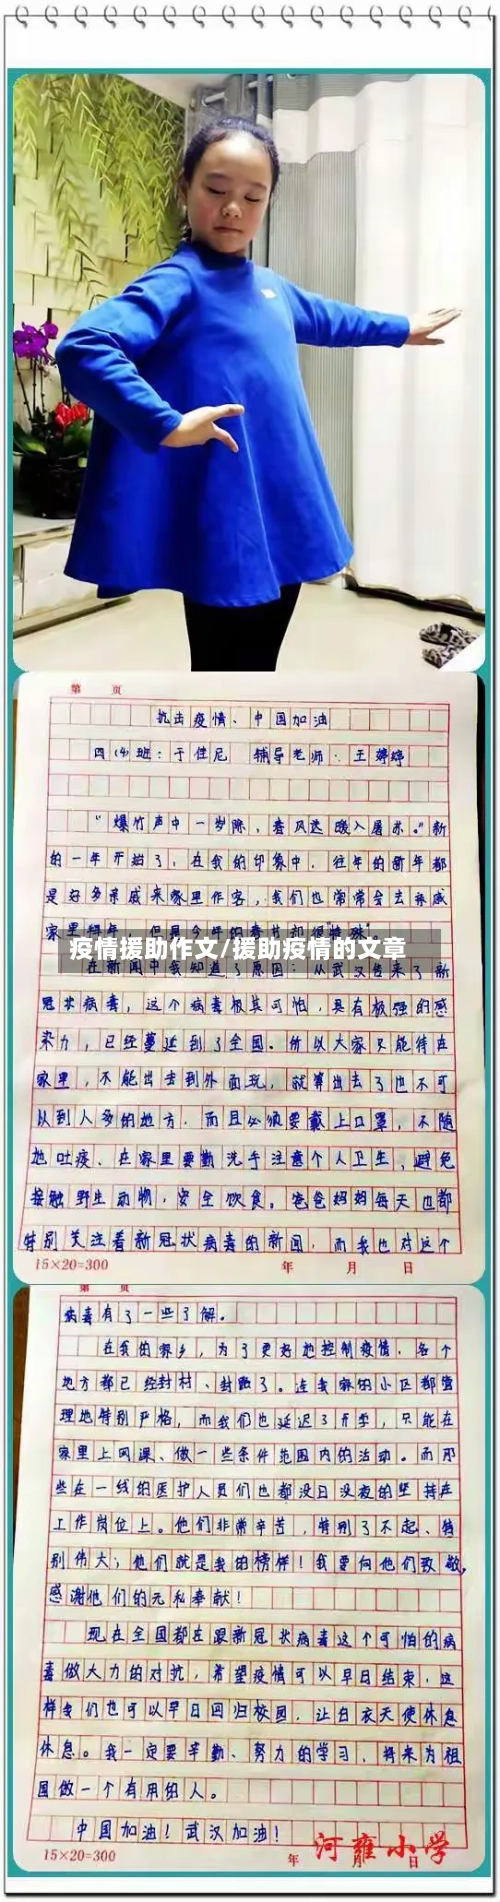 第 页
抗击疫情、中国加油
四(4)班：于佳尼 辅导老师：王婷婷
“爆竹声中一岁除，春风送暖入屠苏。”新
的一年开始了，在我的印象中，往年的新年都
是好多亲戚来家里作客，我们也常常会去亲戚
家里拜年，但是今年的春节却很“特殊”。
疫情援助作文/援助疫情的文章
在新闻中我知道了原因：从武汉传来了新
冠状病毒，这个病毒极其可怕，具有极强的感
染力，已经蔓延到了全国。所以大家只能待在
家里，不能出去到外面玩，就算出去了也不可
以到人多的地方，而且必须要戴上口罩，不随
地吐痰、在家里要勤洗手注意个人卫生，避免
接触野生动物，安全饮食。爸爸妈妈每天也都
特别关注着新冠状病毒的新闻，而我也对这个
15×20=300 年 月 日
第 页
病毒有了一些了解。
在我的家乡，为了更好地控制疫情，各个
地方都已经封村、封路了。连我家的小区都管
理地特别严格，而我们也延迟了开学，只能在
家里上网课、做一些条件范围内的活动。而那
些在一线的医护人员们也都没日没夜的坚持在
工作岗位上。他们非常辛苦，特别了不起、特
别伟大；他们就是我的榜样！我要向他们致敬，
感谢他们的无私奉献！
现在全国都在跟新冠状病毒这个可怕的病
毒做大力的对抗，希望疫情可以早日结束，这
样我们也可以早日回归校园，让白衣天使休息
休息。我一定要辛勤、努力的学习，将来为祖
国做一个有用的人。
中国加油！武汉加油！
15×20=300 年 月 日
河雍小学